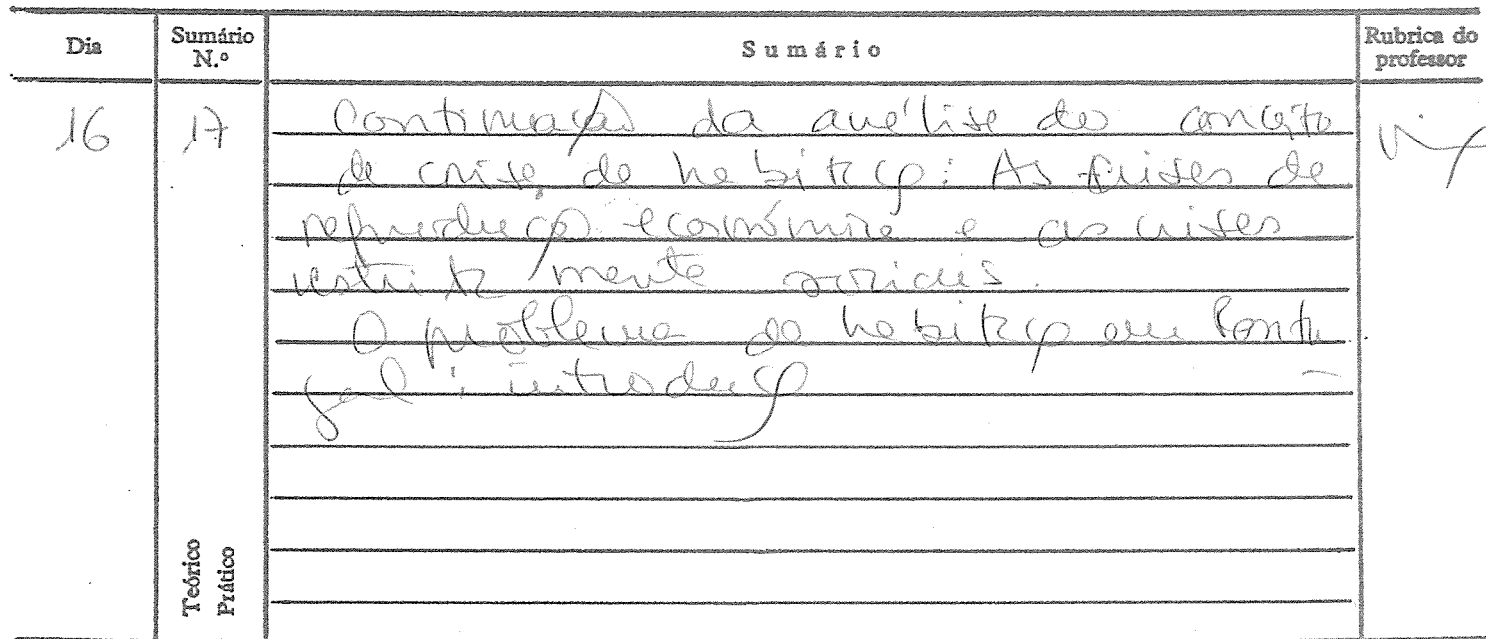 Dia
Sumário N.º
Sumário
Rubrica do professor
16
17
Continuação da análise do conceito
de crise de habitação: As crises de
reprodução económica e as crises
estritamente sociais.
O problema da habitação em Portu-
gal: introdução
Teórico
Prático